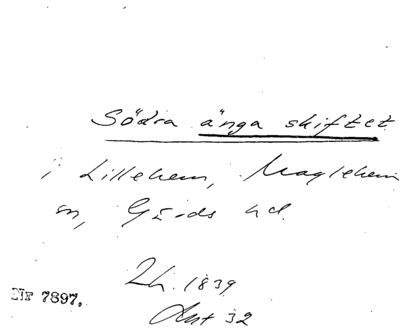 Södra änga skiftet
i Lillehem, Maglehem
sn, Gärds hd.
Lh. 1839
Akt 32
Nr 7897.